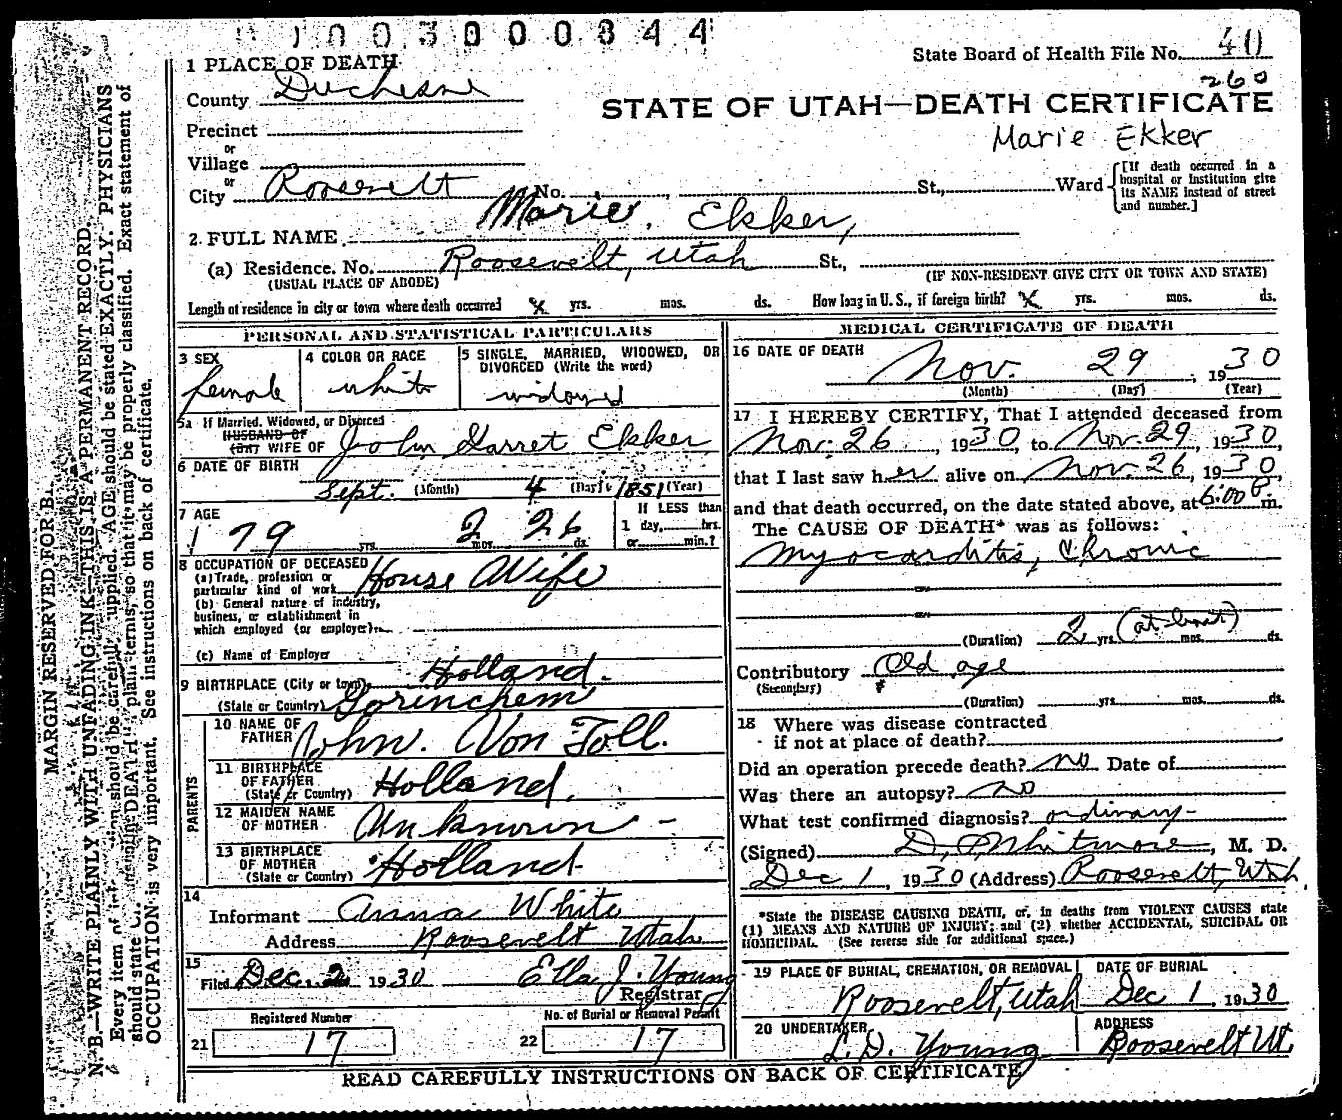 1003000844
State Board of Health File No. 40
260
STATE OF UTAH—DEATH CERTIFICATE
Marie Ekker
1 PLACE OF DEATH
County Duchesne
Precinct
or
Village
or
City Roosevelt No. St., Ward
[If death occurred in a hospital or institution give its NAME instead of street and number.]
2. FULL NAME Marie Ekker,
(a) Residence. No. Roosevelt, Utah St.,
(USUAL PLACE OF ABODE) (IF NON-RESIDENT GIVE CITY OR TOWN AND STATE)
Length of residence in city or town where death occurred X yrs. mos. ds. How long in U. S., if foreign birth? X yrs. mos. ds.
PERSONAL AND STATISTICAL PARTICULARS
3 SEX 4 COLOR OR RACE 5 SINGLE, MARRIED, WIDOWED, OR DIVORCED (Write the word)
female white widowed
5a If Married, Widowed, or Divorced
HUSBAND OF
(or) WIFE OF John Garret Ekker
6 DATE OF BIRTH
Sept. (Month) 4 (Day) 1851 (Year)
7 AGE If LESS than
79 yrs. 2 mos. 26 ds. 1 day, hrs.
or min.?
8 OCCUPATION OF DECEASED
(a) Trade, profession or
particular kind of work House Wife
(b) General nature of industry,
business, or establishment in
which employed (or employer)
(c) Name of Employer
9 BIRTHPLACE (City or town) Holland.
(State or Country) Gorinchem
PARENTS
10 NAME OF FATHER John. Von Toll.
11 BIRTHPLACE OF FATHER
(State or Country) Holland.
12 MAIDEN NAME OF MOTHER Unknown -
13 BIRTHPLACE OF MOTHER
(State or Country) Holland
14
Informant Anna White
Address Roosevelt Utah
15
Filed Dec. 2 1930 Ella J. Young
Registrar
Registered Number No. of Burial or Removal Permit
21 17 22 17
MEDICAL CERTIFICATE OF DEATH
16 DATE OF DEATH
Nov. 29, 1930
(Month) (Day) (Year)
17 I HEREBY CERTIFY, That I attended deceased from
Nov. 26, 1930, to Nov. 29, 1930,
that I last saw her alive on Nov. 26, 1930,
and that death occurred, on the date stated above, at 6:00 P.m.
The CAUSE OF DEATH* was as follows:
Myocarditis, Chronic
(Duration) 2 yrs. (at least) mos. ds.
Contributory Old age
(Secondary)
(Duration) yrs. mos. ds.
18 Where was disease contracted
if not at place of death?
Did an operation precede death? no Date of
Was there an autopsy? no
What test confirmed diagnosis? ordinary-
(Signed) Whitmore, M. D.
Dec 1, 1930 (Address) Roosevelt, Utah.
*State the DISEASE CAUSING DEATH, or, in deaths from VIOLENT CAUSES state
(1) MEANS AND NATURE OF INJURY; and (2) whether ACCIDENTAL, SUICIDAL OR
HOMICIDAL. (See reverse side for additional space.)
19 PLACE OF BURIAL, CREMATION, OR REMOVAL DATE OF BURIAL
Roosevelt, Utah Dec 1, 1930
20 UNDERTAKER ADDRESS
L. D. Young Roosevelt Ut.
READ CAREFULLY INSTRUCTIONS ON BACK OF CERTIFICATE
MARGIN RESERVED FOR B
N. B.—WRITE PLAINLY WITH UNFADING INK—THIS IS A PERMANENT RECORD.
Every item of should be carefully supplied. AGE should be stated EXACTLY. PHYSICIANS
should state DEATH in plain terms, so that it may be properly classified. Exact statement of
OCCUPATION is very important. See instructions on back of certificate.